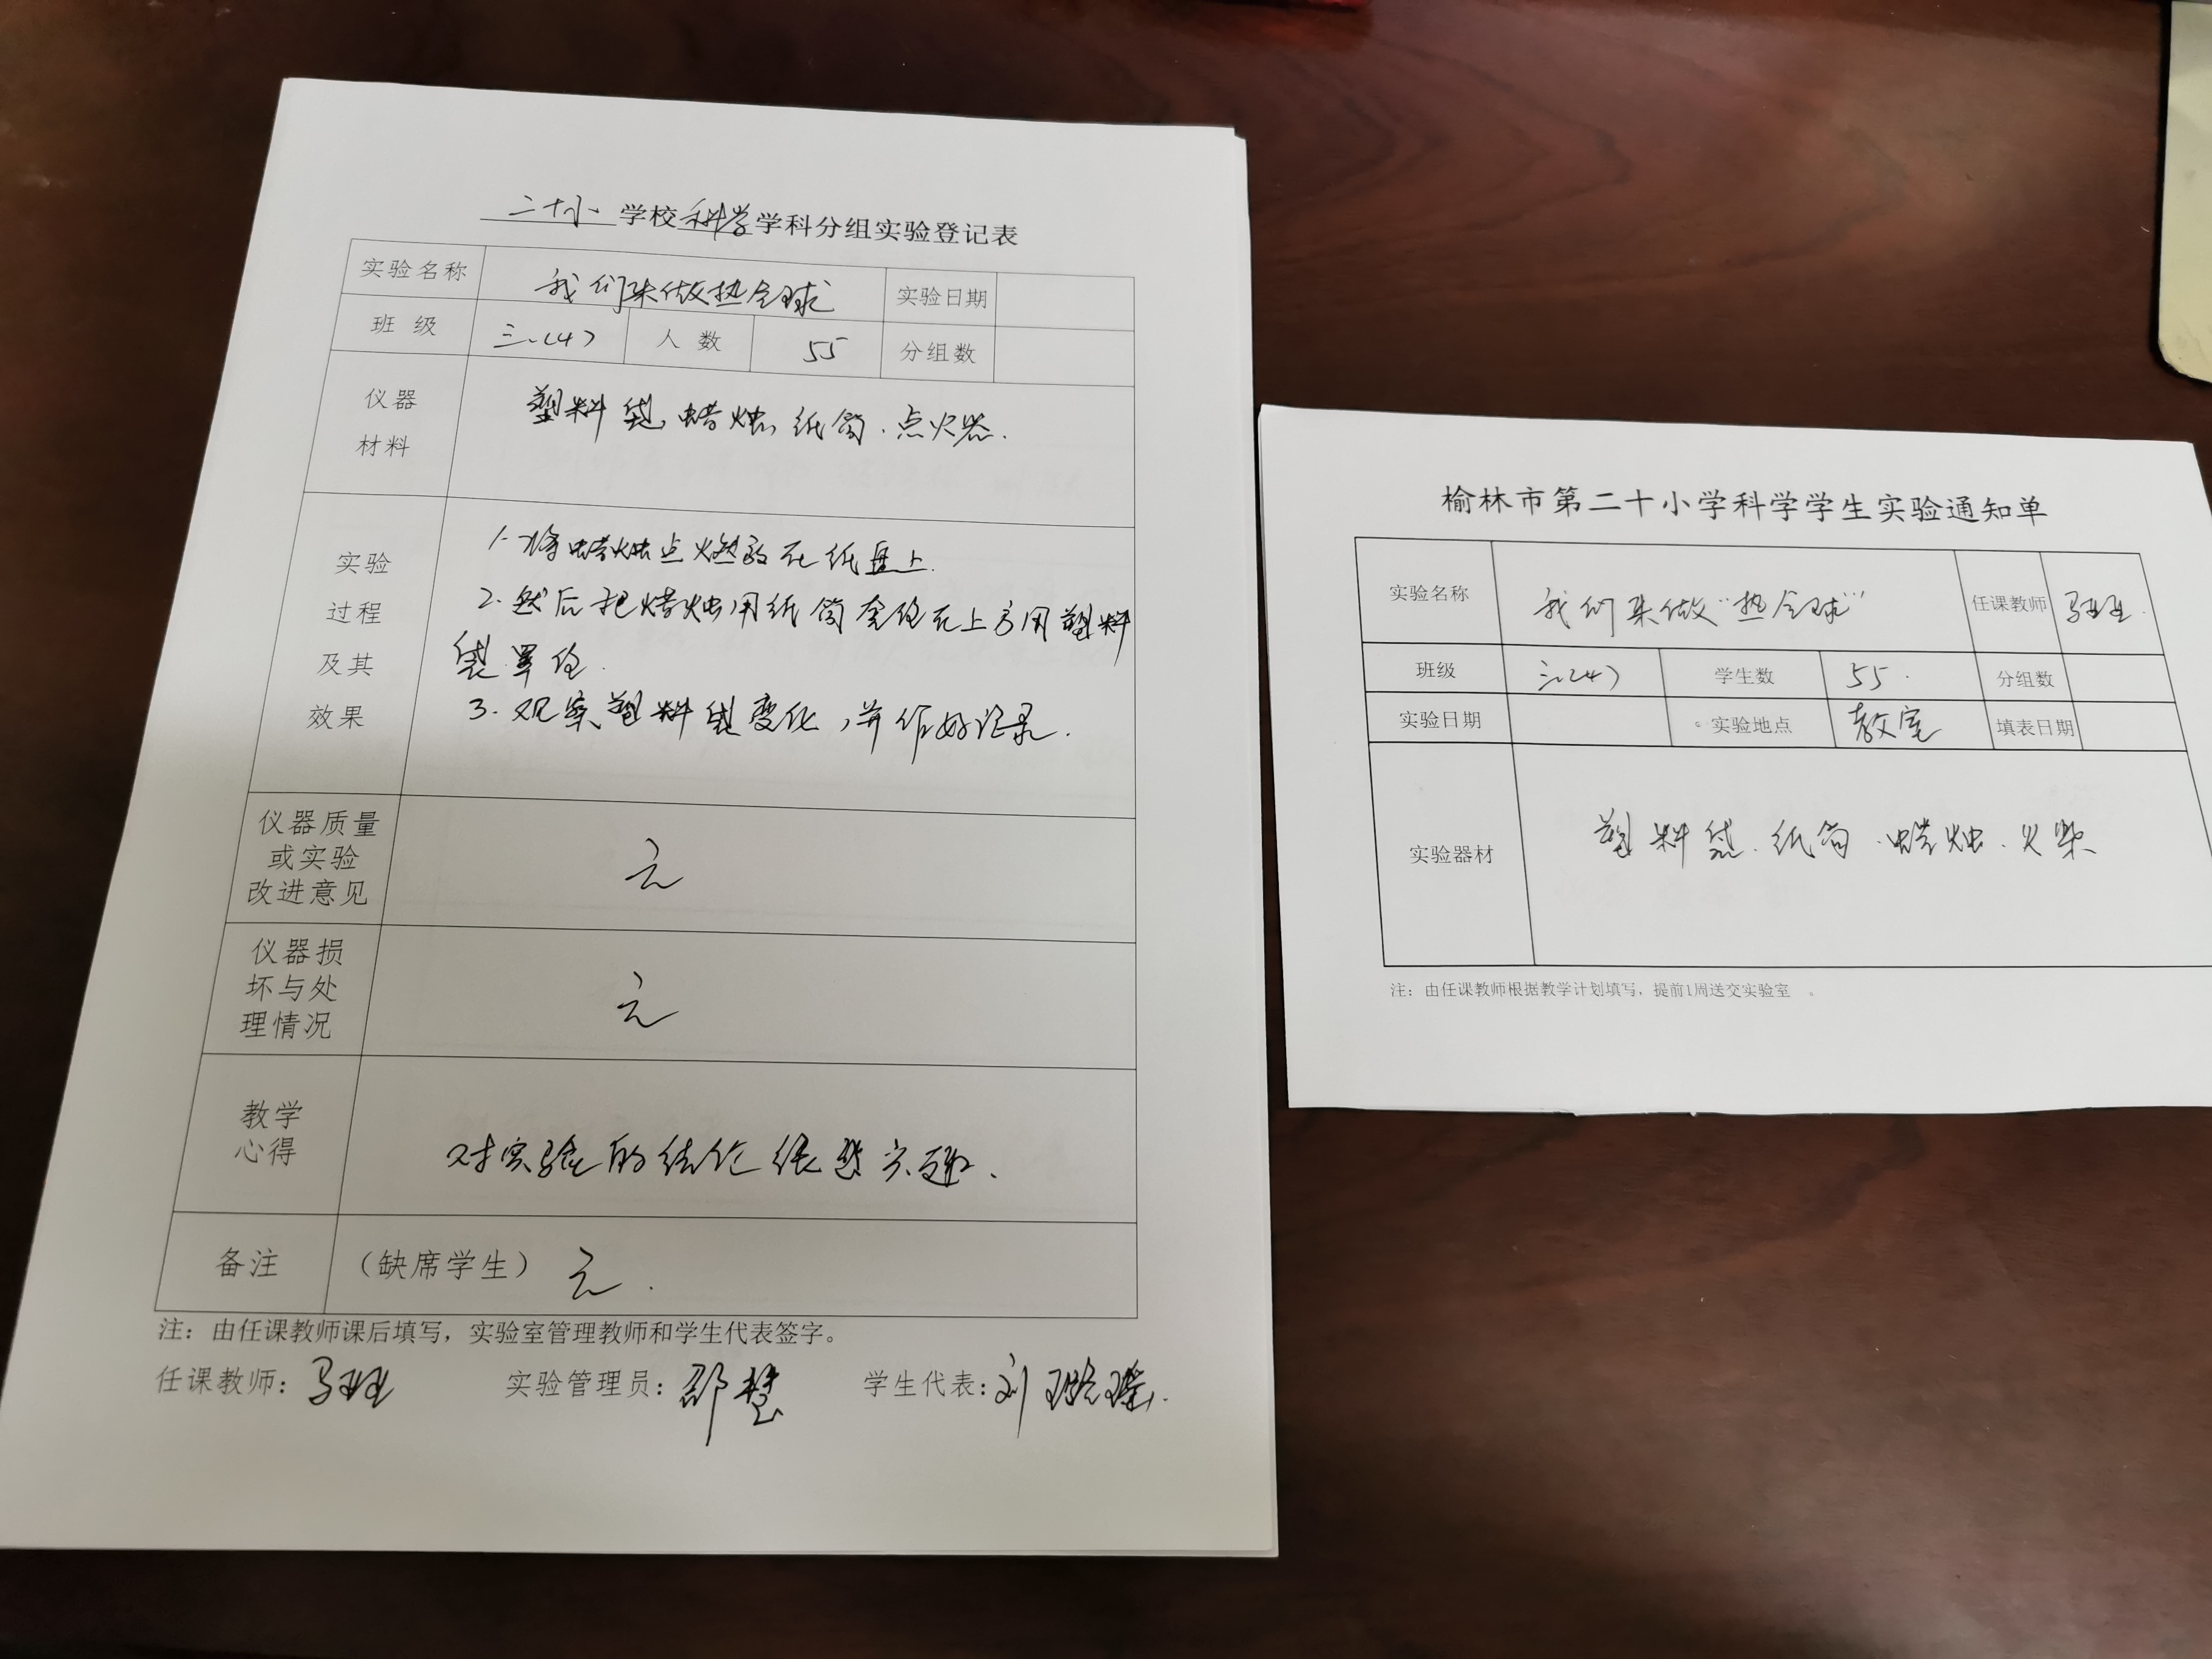 二十小 学校 科学 学科分组实验登记表
实验名称 我们来做热气球 实验日期
班 级 三、(4) 人 数 55 分组数
仪器
材料
塑料袋、蜡烛、纸筒、点火器.
实验
过程
及其
效果
1. 将蜡烛点燃放在纸盘上.
2. 然后把蜡烛用纸筒套住在上方用塑料
袋罩住.
3. 观察塑料袋变化,并作好记录.
仪器质量
或实验
改进意见
无
仪器损
坏与处
理情况
无
教学
心得
对实验的结论很感兴趣.
备注 (缺席学生) 无.
注：由任课教师课后填写，实验室管理教师和学生代表签字。
任课教师： 实验管理员：邵慧 学生代表：刘
榆林市第二十小学科学学生实验通知单
实验名称 我们来做“热气球” 任课教师
班级 三、(4) 学生数 55. 分组数
实验日期 实验地点 教室 填表日期
实验器材 塑料袋、纸筒、蜡烛、火柴
注：由任课教师根据教学计划填写，提前1周送交实验室 。